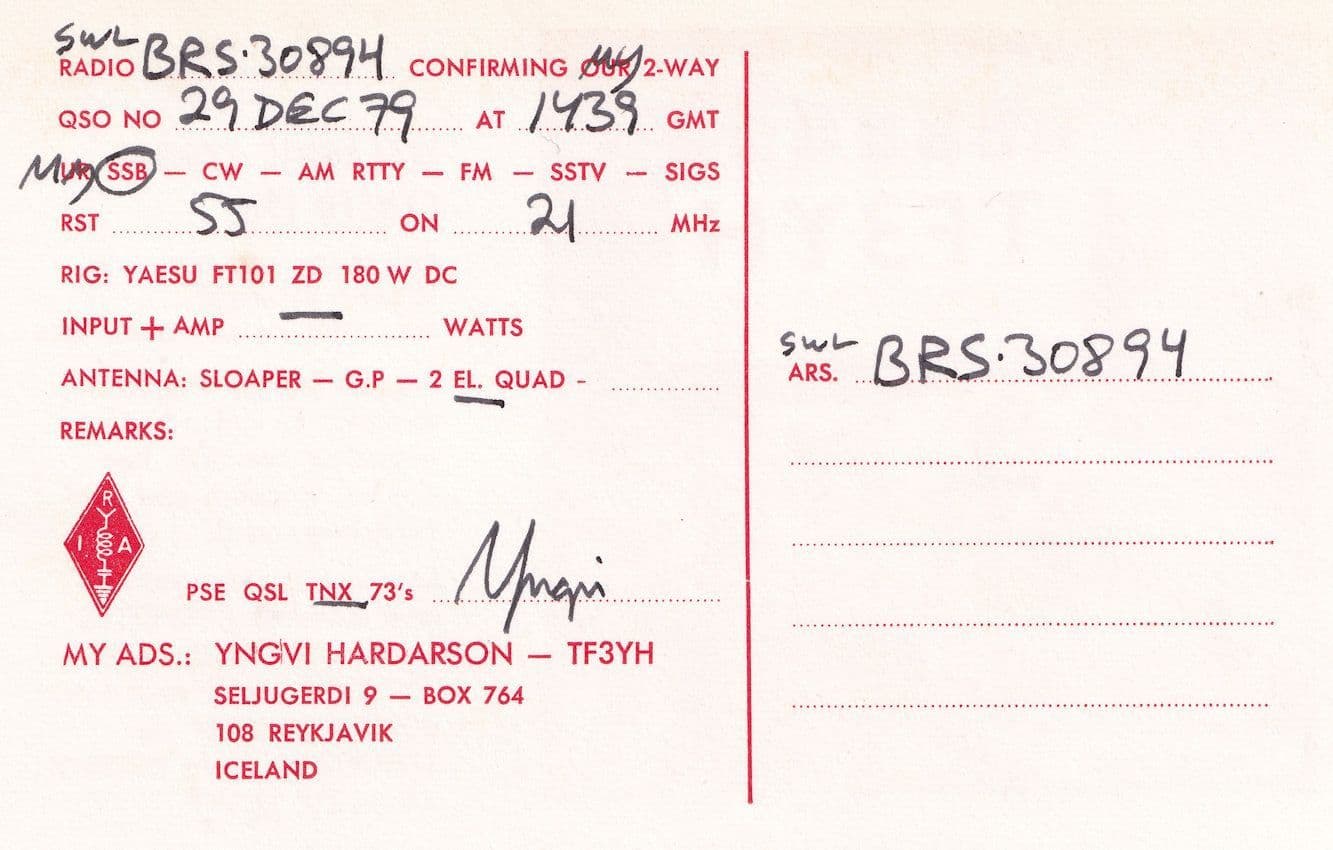 SWL
RADIO BRS·30894 CONFIRMING OUR MY 2-WAY
QSO NO 29 DEC 79 AT 1439 GMT
MY UR SSB — CW — AM RTTY — FM — SSTV — SIGS
RST 55 ON 21 MHz
RIG: YAESU FT101 ZD 180 W DC
INPUT + AMP — WATTS
ANTENNA: SLOAPER — G.P — 2 EL. QUAD -
REMARKS:
R
I A
PSE QSL TNX 73's Yngvi
MY ADS.: YNGVI HARDARSON — TF3YH
SELJUGERDI 9 — BOX 764
108 REYKJAVIK
ICELAND
SWL
ARS. BRS·30894